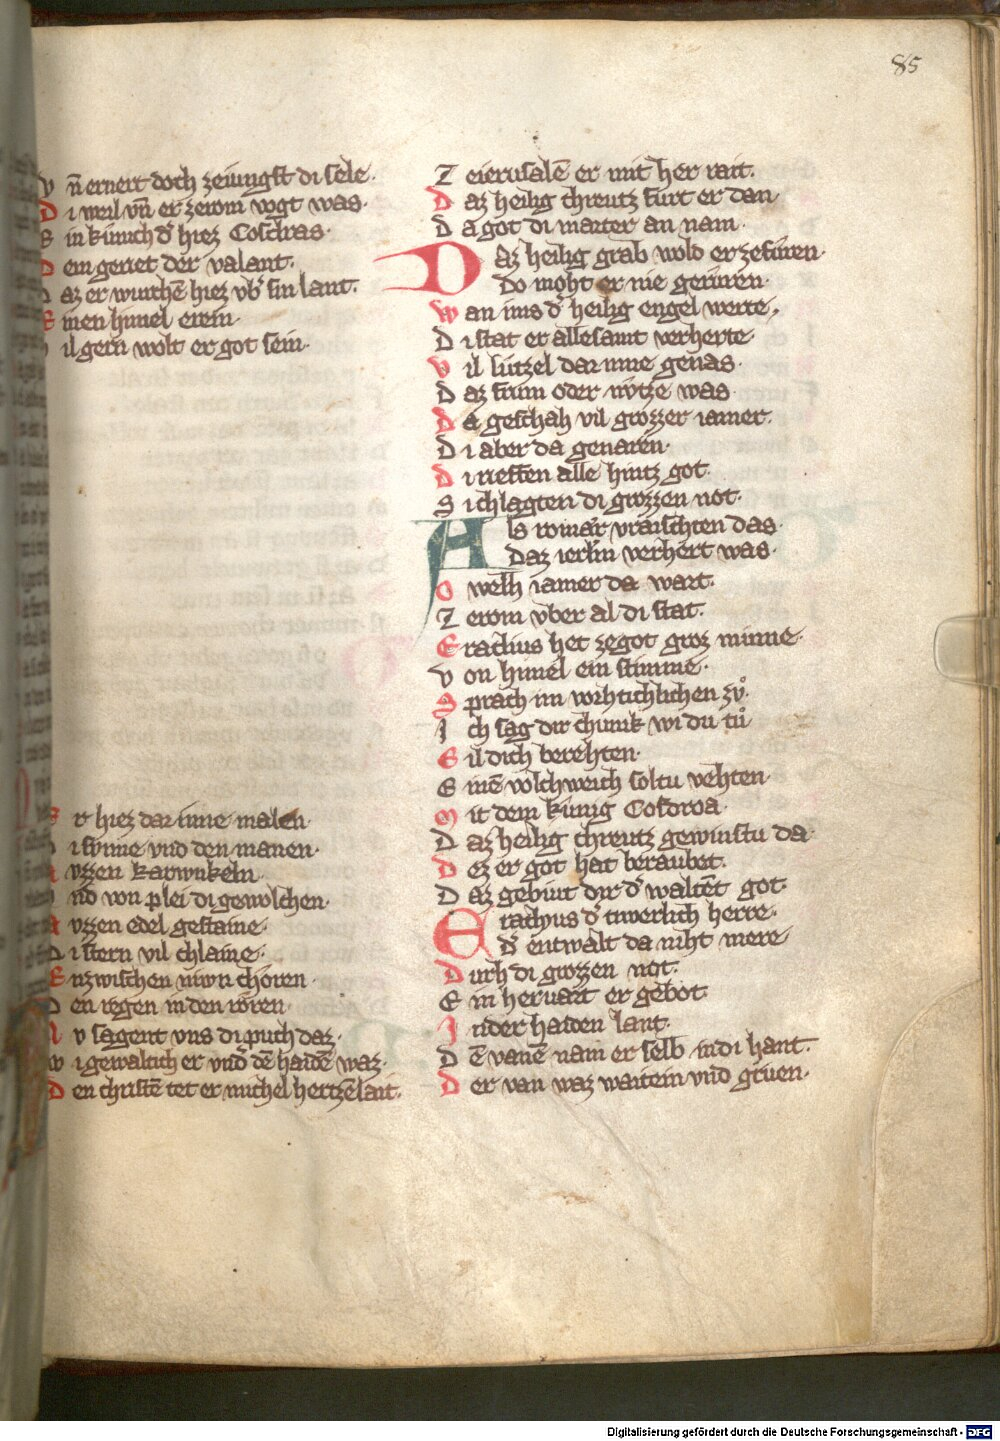 85
Vn̄ ernert doch zeiungst di sele.
Di weil vn̄ er zerom vogt was.
Ein kunich d͛ hiez Cosdras.
Dem geriet der valant.
Daz er wurchē hiez vb͛ sin lant.
Einen himel erein.
Vil gern wolt er got sein.
Er hiez dar inne malen.
Di sunne vnd den manen.
Vzzen karwnkeln.
Vnd von plei di gewolchen.
Auzzen edel gestaine.
Di stern vil chlaine.
Enzwischen niwn choren.
Den regen in den roren.
Nv sagent vns di puch daz.
Wi gewaltich er vnd͛ dē haidē waz.
Den christē tet er michel hertzēlait.
Zeierusalē er mit her rait.
Daz heilig chreutz furt er dan.
Da got di marter an nam.
Daz heilig grab wold er zefuren.
Do moht er nie geruren.
Wan ims d͛ heilig engel werte.
Di stat er allesamt verherte.
Vil lutzel dar inne genas.
Daz frum oder nvtze was
Da geschah vil grozzer iamer.
Di aber da genaren.
Di rieffen alle hintz got.
Si chlagten di grozzen not.
Als romar vraischten das.
Daz ierlm verhert was.
O welh iamer da wart.
Zerom vber al di stat.
Eraclius het zegot groz minne.
Von himel ein stimme.
Sprach im vorhtichlichen zv̊.
Ich sag dir chunik wi du tů
Eil dich berehten.
Einē volchweich soltu vehten.
Mit dem kunig Cosdroa.
Daz heilig chreutz gewinstu da.
Dez er got hat beraubet.
Daz gebiut dir d͛ waltēt got.
Erachus d͛ tiwerlich herre.
d͛ entwalt da niht mere
Durch di grozzen not.
Ein hervart er gebot
In der haiden lant.
Dē vanē nam er selb in di hant.
Der van waz waitein vnd gruen.
Digitalisierung gefördert durch die Deutsche Forschungsgemeinschaft - DFG